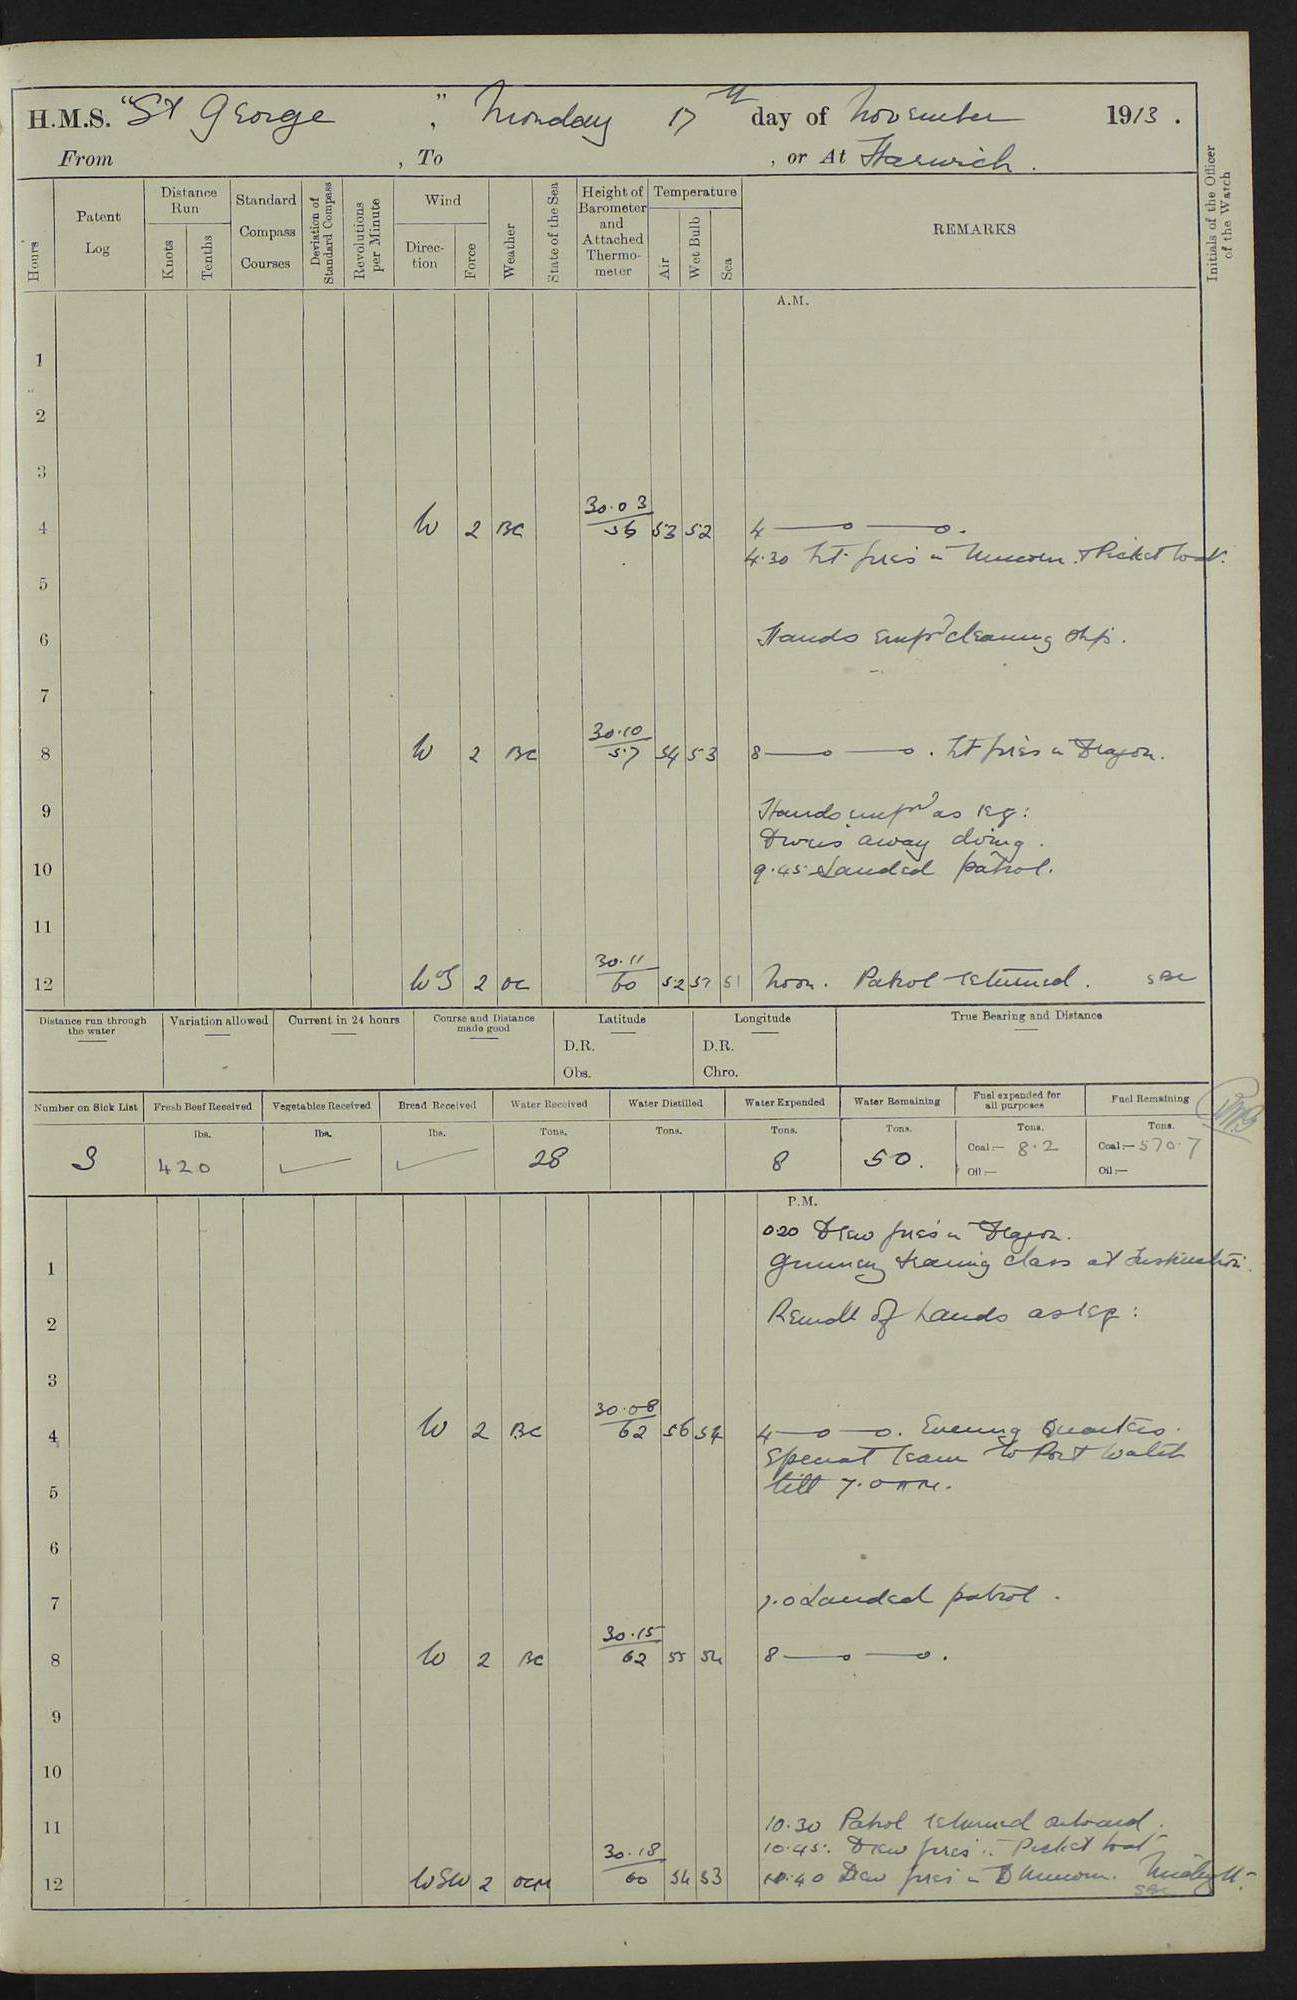 H.M.S. "St George", Monday 17th day of November 1913.
From , To , or At Harwich.
Hours
Patent Log
Distance Run
Knots
Tenths
Standard Compass Courses
Deviation of Standard Compass
Revolutions per Minute
Wind
Direction
Force
Weather
State of the Sea
Height of Barometer and Attached Thermometer
Temperature
Air
Wet Bulb
Sea
REMARKS
Initials of the Officer of the Watch
A.M.
1
2
3
4 W 2 BC 30.03 56 53 52 4
4.30 Lt. fires in & Picket boat.
5
6 Hands empd cleaning ship.
7
8 W 2 BC 30.10 57 54 53 8 . Lt fires in Dragon.
9 Hands empd as req:
Divers away diving.
10 9.45 Landed patrol.
11
12 2 OC 30.11 60 52 51 Noon. Patrol returned. SBC
Distance run through the water
Variation allowed
Current in 24 hours
Course and Distance made good
Latitude
D.R.
Obs.
Longitude
D.R.
Chro.
True Bearing and Distance
Number on Sick List
Fresh Beef Received
Vegetables Received
Bread Received
Water Received
Water Distilled
Water Expended
Water Remaining
Fuel expended for all purposes
Fuel Remaining
lbs. lbs. lbs. Tons. Tons. Tons. Tons. Tons. Tons.
3 420 28 8 50. Coal:— 8.2 Coal:— 570.7
Oil:— Oil:—
P.M.
0.20 Drew fires in Dragon.
1 Gunnery training class at Instruction.
2 Remdr of hands as req:
3
4 W 2 BC 30.08 62 56 54 4 . Evening Quarters.
Special leave to Port Watch
5 till 7.0 AM.
6
7 7.0 Landed patrol.
8 W 2 BC 30.15 62 55 54 8
9
10
11 10.30 Patrol returned onboard.
10.45. Drew fires in Picket boat
12 WSW 2 OCM 30.18 60 54 53 10.40 Drew fires in Midngt.
SBC